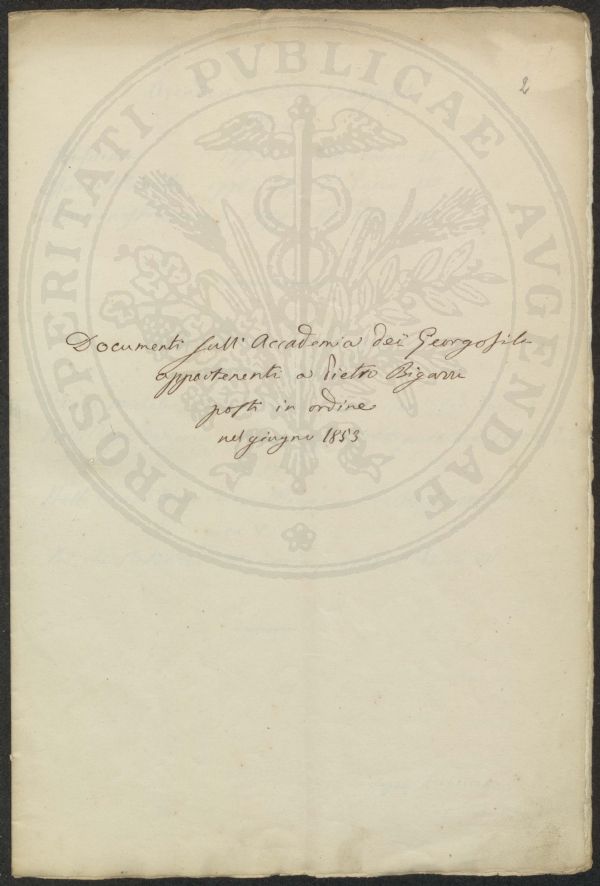 2
PROSPERITATI PVBLICAE AVGENDAE
Documenti sull' Accademia dei Georgofili
appartenenti a Pietro Bigazzi
posti in ordine
nel giugno 1853